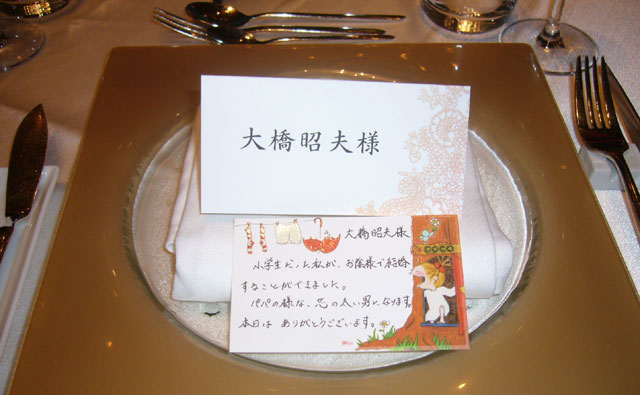 大橋昭夫様
大橋昭夫様
COCO
小学生だった私が、お陰様で結婚
することができました。
パパの様な、芯の太い男になります。
本日は ありがとうございます。